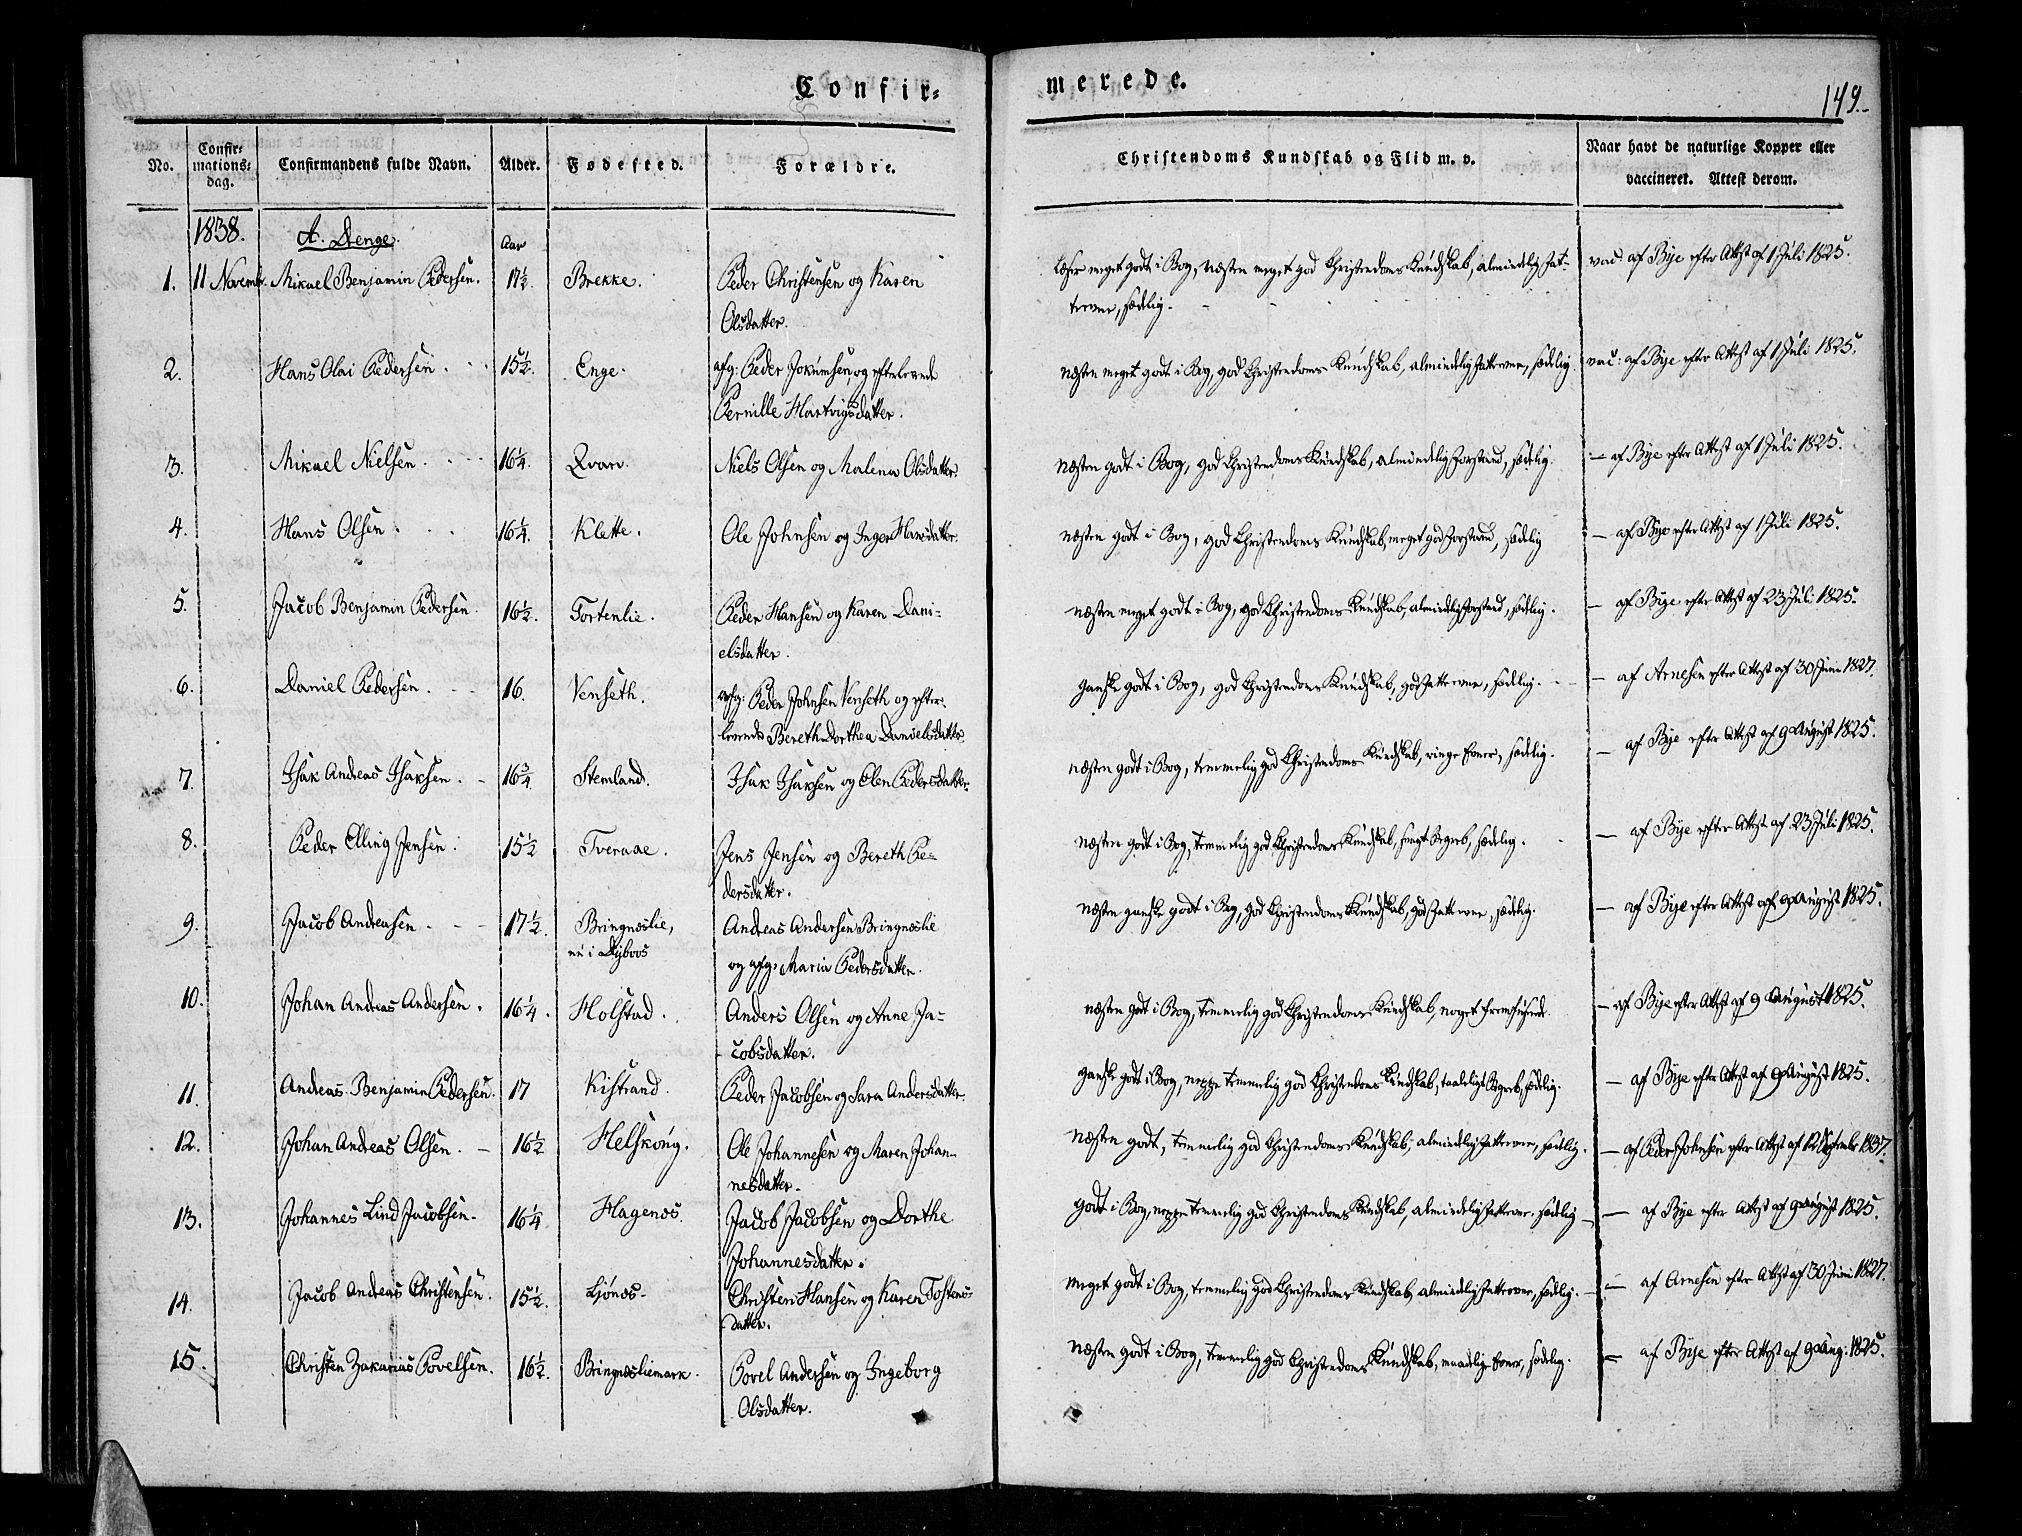 Confir-
merede.
149.
No.
Confir-
mations-
dag.
Confirmandens fulde Navn.
Alder.
Fødested.
Forældre.
Christendoms Kundskab og Flid m. v.
Naar havt de naturlige Kopper eller
vaccineret. Attest derom.
1838. A. Drenge. Aar
1. 11 Novembr. Mikael Benjamin Pedersen. 17½. Brekke. Peder Christensen og Karen læser meget godt i Bog, næsten meget god Christendoms Kundskab, almindelig Fat- vac: af Bye efter Attest af 1 Juli 1825.
Olsdatter. teevne, sædelig.
2. Hans Olai Pedersen. 15½. Enge. afg: Peder Jokumsen, og efterlevende næsten meget godt i Bog, god Christendoms Kundskab, almindelig Fatteevne, sædelig vac: af Bye efter Attest af 1 Juli 1825.
Pernille Hartvigsdatter.
3. Mikael Nielsen. 16¼. Qvarv. Niels Olsen og Malena Olsdatter. næsten godt i Bog, god Christendoms Kundskab, almindelig Forstand, sædelig. — af Bye efter Attest af 1 Juli 1825.
4. Hans Olsen. 16¼. Klette. Ole Johnsen og Inger Hansdatter. næsten godt i Bog, god Christendoms Kundskab, meget god Forstand, sædelig — af Bye efter Attest af 1 Juli 1825.
5. Jacob Benjamin Pedersen. 16½. Tortenlie. Peder Hansen og Karen Dani- næsten meget godt i Bog, god Christendoms Kundskab, almindelig Forstand, sædelig. — af Bye efter Attest af 23 Juli 1825.
elsdatter.
6. Daniel Pedersen. 16. Venseth. afg: Peder Johnsen Venseth og efter- ganske godt i Bog, god Christendoms Kundskab, god Fatteevne, sædelig. — af Arnesen efter Attest af 30 Juni 1827.
levende Bereth Dorthea Danielsdatter.
7. Isak Andreas Isaksen. 16¾. Stemland. Isak Isaksen og Elen Pedersdatter. næsten godt i Bog, temmelig god Christendoms Kundskab, ringe Evner, sædelig. — af Bye efter Attest af 9 August 1825.
8. Peder Elling Jensen. 15½ Tveraae. Jens Jensen og Bereth Pe- næsten godt i Bog, temmelig god Christendoms Kundskab, Begreb, sædelig. — af Bye efter Attest af 23 Juli 1825.
dersdatter.
9. Jacob Andreasen. 17½. Bringneslie, Andreas Andersen Bringneslie næsten ganske godt i Bog, god Christendoms Kundskab, god Fatteevne, sædelig. — af Bye efter Attest af 9 August 1825.
nu i Dybvos og afg: Maria Pedersdatter.
10. Johan Andreas Andersen. 16¼. Holstad. Anders Olsen og Anne Ja- næsten godt i Bog, temmelig god Christendoms Kundskab, noget fremfusende. — af Bye efter Attest af 9 August 1825.
cobsdatter.
11. Andreas Benjamin Pedersen. 17 Kistrand. Peder Jacobsen og Sara Andersdatter. ganske godt i Bog, neppe temmelig god Christendoms Kundskab, taaleligt Begreb, sædelig. — af Bye efter Attest af 9 August 1825.
12. Johan Andreas Olsen. 16½ Helskong. Ole Johannesen og Maren Johan- næsten godt, temmelig god Christendoms Kundskab, almindelig Fatteevne, sædelig. — af Peder Johnsen efter Attest af 12 Septembr 1837.
nesdatter.
13. Johannes Lind Jacobsen. 16¼ Hagenes. Jacob Jacobsen og Dorthe godt i Bog, neppe temmelig god Christendoms Kundskab, almindelig Fatteevne, sædelig — af Bye efter Attest af 9 August 1825.
Johannesdatter.
14. Jacob Andreas Christensen. 15½. Ljønes. Christen Hansen og Karen Tostens- meget godt i Bog, temmelig god Christendoms Kundskab, almindelig Fatteevne, sædelig. — af Arnesen efter Attest af 30 Juni 1827.
datter.
15. Christen Zakarias Povelsen. 16½. Bringnesliemark. Povel Andersen og Ingeborg næsten godt i Bog, temmelig god Christendoms Kundskab, maadelige Evner, sædelig. — af Bye efter Attest af 9 Aug: 1825.
Olsdatter.